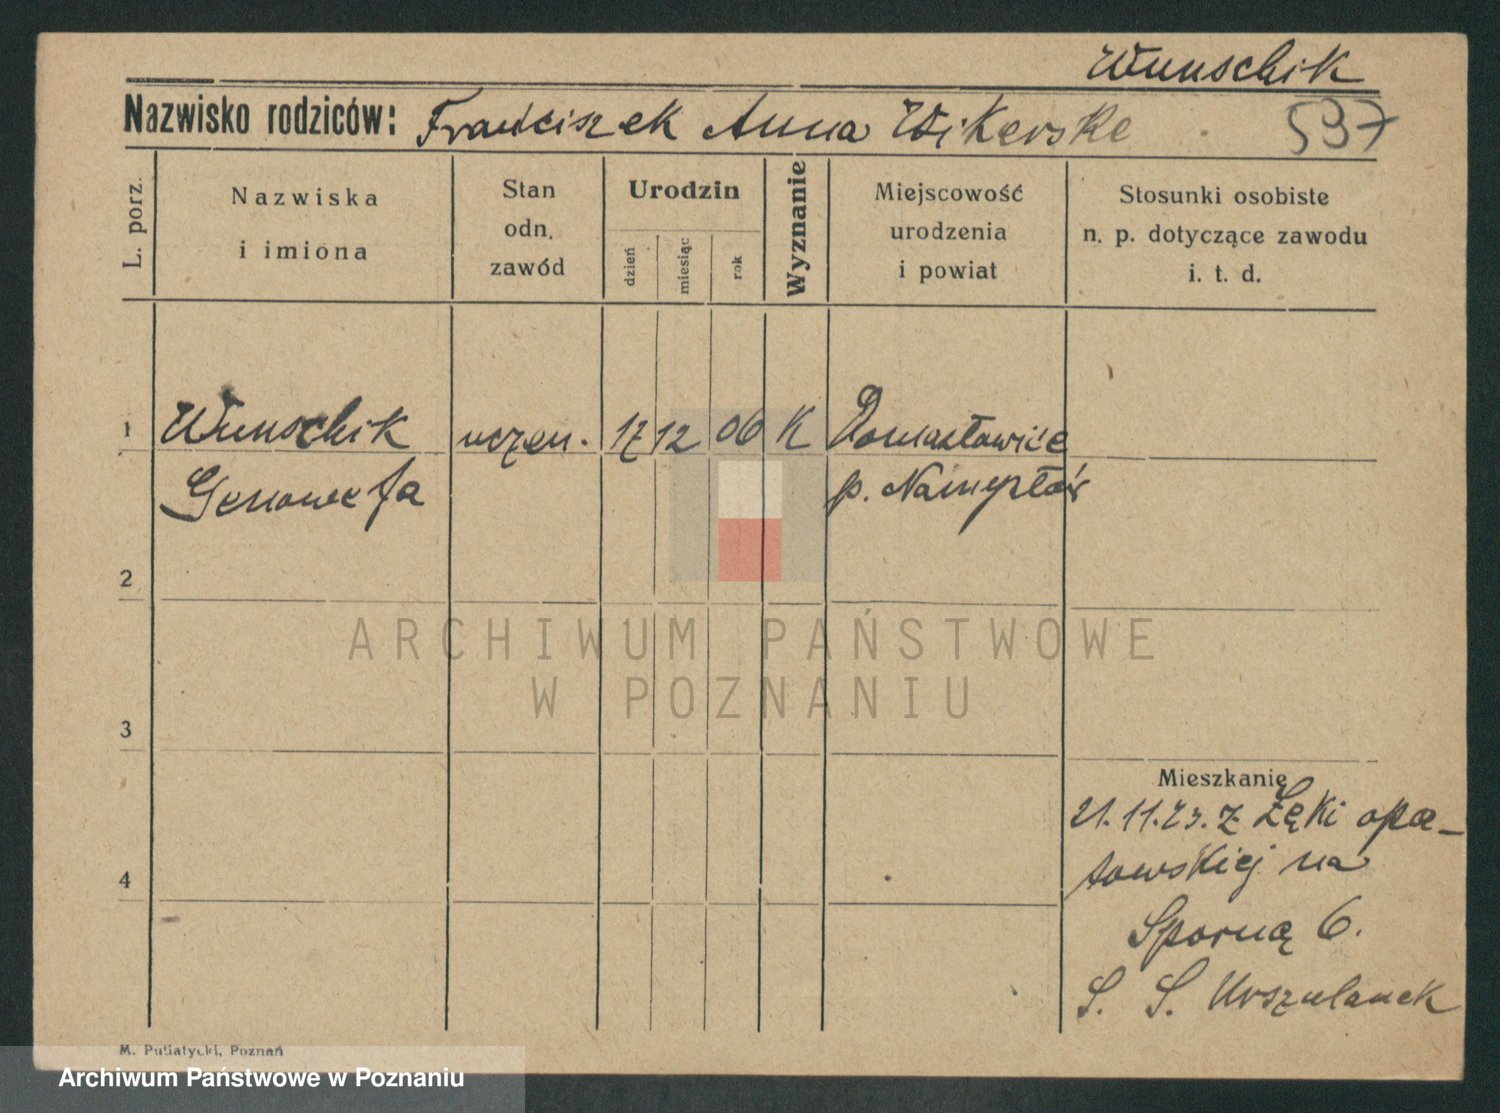 Wunschik
Nazwisko rodziców: Franciszek Anna Wikerske
537
L. porz.
Nazwiska
i imiona
Stan
odn.
zawód
Urodzin
dzień
miesiąc
rok
Wyznanie
Miejscowość
urodzenia
i powiat
Stosunki osobiste
n. p. dotyczące zawodu
i. t. d.
1 Wunschik uczen. 17 12 06 K Domasławice
Genowefa p. Namysłów
2
ARCHIWUM PAŃSTWOWE
W POZNANIU
3
Mieszkanie
21.11.23. z Łęki opa-
towskiej na
4
Sporną 6.
S. S. Urszulanek
M. Putiatycki, Poznań
Archiwum Państwowe w Poznaniu